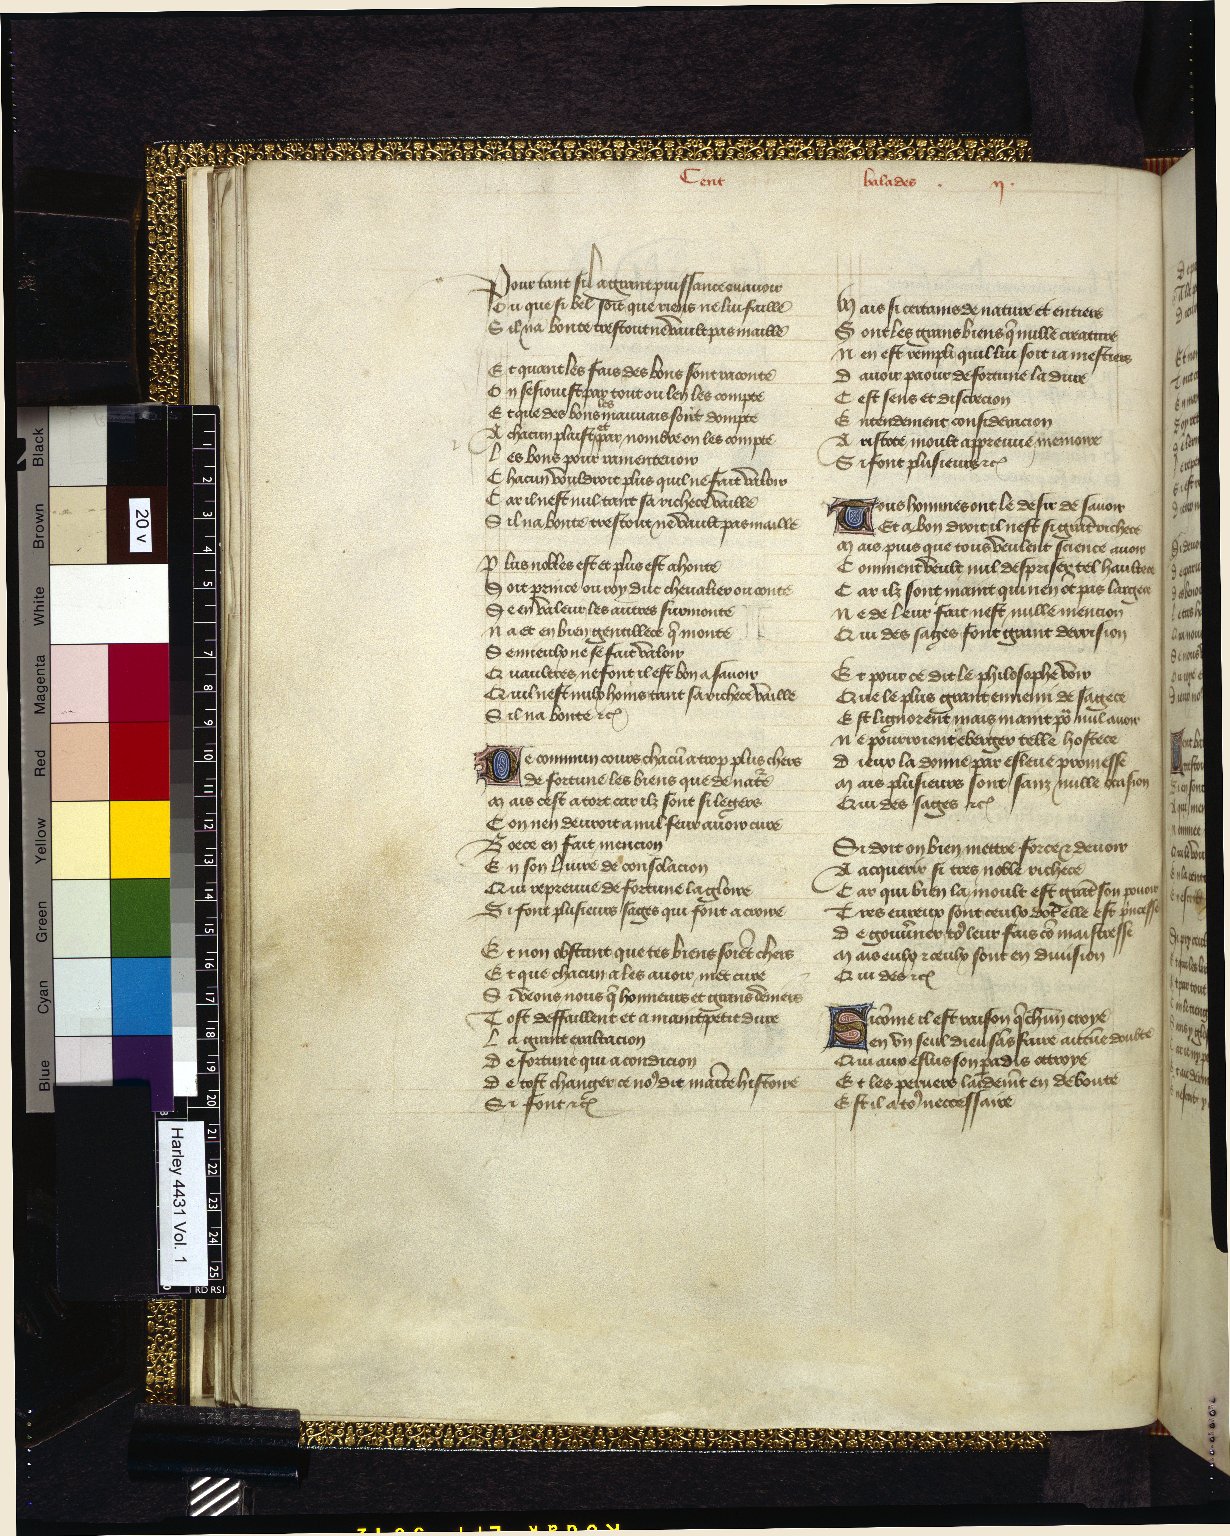 Cent balades . ij.
Pour tant sil a grant puissance ou avoir
Ou que si bel soit que riens ne lui faille
Sil na bonte trestout ne vault pas maille
Et quant les fais des bons sont raconte
On sesjouist par tout ou len les compte
Et que des bons les mauvais soient dompte
A chacun plaist et par nombre on les compte
Les bons pour ramentevoir
Chacun vouldroit plus quil ne fait valoir
Car il nest nul tant sa richece vaille
Sil na bonte trestout ne vault pas maille
Plus nobles est et plus est a honte
Soit prince ou roy duc chevalier ou conte
Se en valeur les autres surmonte
Na et en bien gentillece q̃ monte
Se mieulx ne se fait valoir
Quaultres ne font il est bon a savoir
Quil nest nulx homs tant sa richece vaille
Sil na bonte &c̃
De commun cours chacũ a trop plus chers
de fortune les biens que de natẽ
Mais cest a tort car ilz sont si legers
Con nen devroit a nul feur avoir cure
Boece en fait mencion
En son livre de consolacion
Qui repreuve de fortune la gloire
Si font plusieurs sages qui font a croire
Et non obstant que tes biens soiẽt chers
Et que chacun a les avoir met cure
Si veons nous q̃ honneurs et grans deniers
Tost deffaillent et a maint petit dure
La grant exaltacion
De fortune qui a condicion
De tost changer ce noꝰ dit mainte histoire
Si font &c̃
Mais si certains de nature et entiers
Sont les grans biens q̃ nulle creature
Nen est rempli quil lui soit ja mestiers
Davoir paour de fortune la dure
Cest sens et discrecion
Entendement consideracion
Aristote moult appreuve memoire
Si font plusieurs &c̃
Tous hommes ont le desir de savoir
Et a bon droit il nest si grãt richece
Mais puis que tous veulent science avoir
Comment veult nul desprisier tel haultece
Car ilz sont maint qui nen õt pas largece
Ne de leur fait nest nulle mencion
Qui des sages font grant derrision
Et pour ce dit le philosophe voir
Que le plus grant ennemi de sagece
Est lignorent mais maint poꝰ nul avoir
Ne pourroient eberger telle hostece
Dieux la donne par esleue promesse
Mais plusieurs sont sanz nulle occasion
Qui des sages &c̃
Si doit on bien mettre force & devoir
A acquerir si tres noble richece
Car qui bien la moult est grãt son pouoir
Tres eureux sont ceulx dõt elle est p̃ncesse
De gouv̾ner toꝰ leur fais cõ maistresse
Mais eulx & ceulx sont en division
Qui des &c̃
Sicõme il est raison q̃ chũn croye
en un seul dieu sãs faire aucũe doubte
Qui aux eslus son padis ottroye
Et les pervers laidem̃t en deboute
Est il a toꝰ neccessaire
Harley 4431 Vol. 1
20 v
Black
Brown
White
Magenta
Red
Yellow
Green
Cyan
Blue
1
2
3
4
5
7
8
9
10
11
12
13
14
15
16
17
18
19
20
21
22
23
24
25